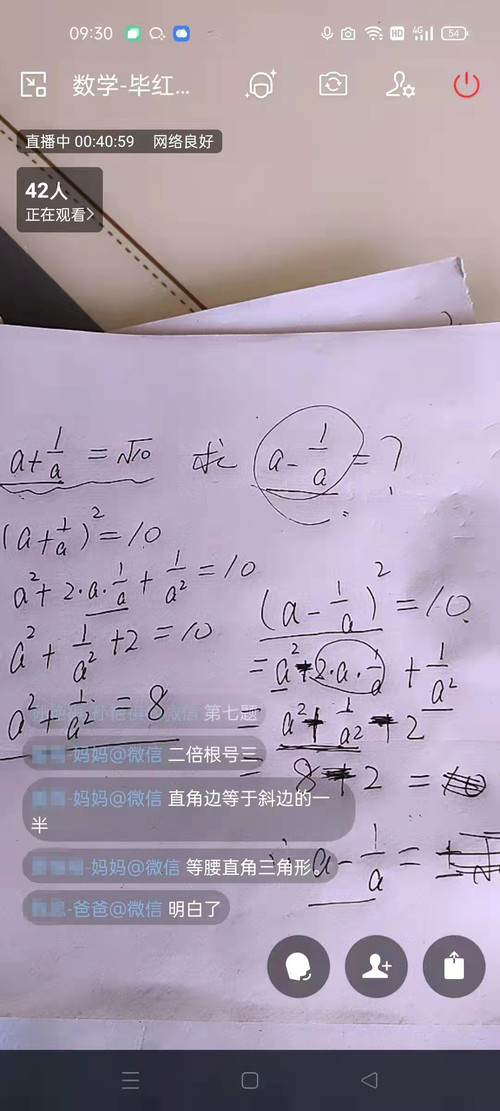 09:30
HD 4G 54
数学-毕红...
直播中 00:40:59 网络良好
42人
正在观看>
a+1/a=√10 求 a-1/a=?
(a+1/a)²=10
a²+2·a·1/a+1/a²=10
a²+1/a²+2=10
a²+1/a²=8
(a-1/a)²=10
=a²-2·a·1/a+1/a²
=a²+1/a²-2
=8-2=
∴a-1/a=±
第七题
-妈妈@微信 二倍根号三
-妈妈@微信 直角边等于斜边的一
半
-妈妈@微信 等腰直角三角形。
-爸爸@微信 明白了